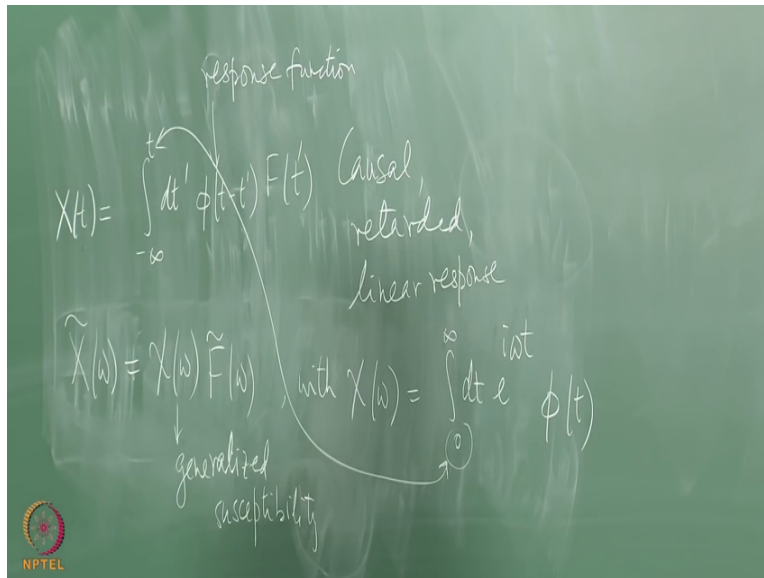 response function
X(t) = ∫_{-∞}^{t} dt' φ(t-t') F(t') Causal,
retarded,
linear response
X̃(ω) = χ(ω) F̃(ω), with χ(ω) = ∫_{0}^{∞} dt e^{iωt} φ(t)
generalized
susceptibility
NPTEL